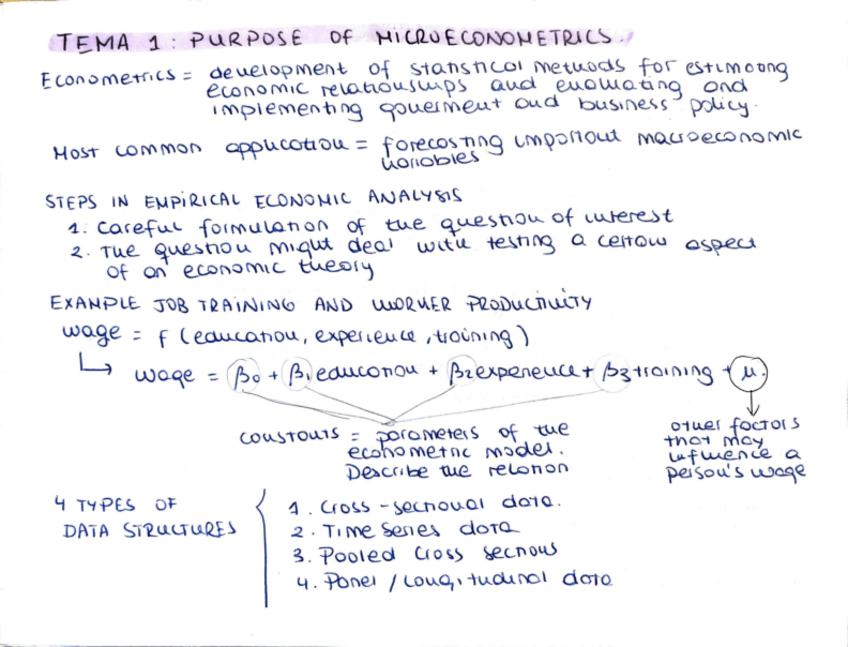 TEMA 1: PURPOSE OF MICROECONOMETRICS.
Econometrics = development of statistical methods for estimating
economic relationships and evaluating and
implementing government and business policy.
Most common application = forecasting important macroeconomic
variables
STEPS IN EMPIRICAL ECONOMIC ANALYSIS
1. Careful formulation of the question of interest
2. The question might deal with testing a certain aspect
of an economic theory
EXAMPLE JOB TRAINING AND WORKER PRODUCTIVITY
wage = f (education, experience, training)
↳ wage = β0 + β1 education + β2 experience + β3 training + μ.
constants = parameters of the
econometric model.
Describe the relation
other factors
that may
influence a
person's wage
4 TYPES OF
DATA STRUCTURES
1. Cross-sectional data.
2. Time series data
3. Pooled cross sections
4. Panel / longitudinal data